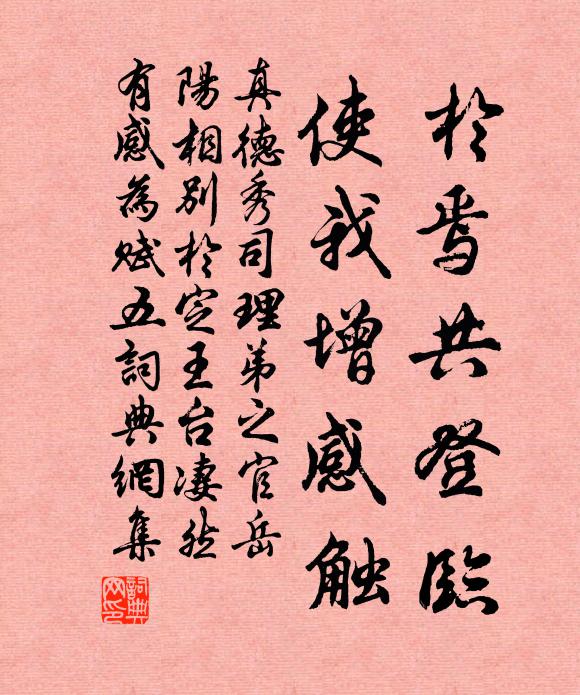 於焉共登臨
使我增感触
真德秀司理弟之官岳
陽相別於定王台凄然
有感為赋五詞典網集
詞典
网印